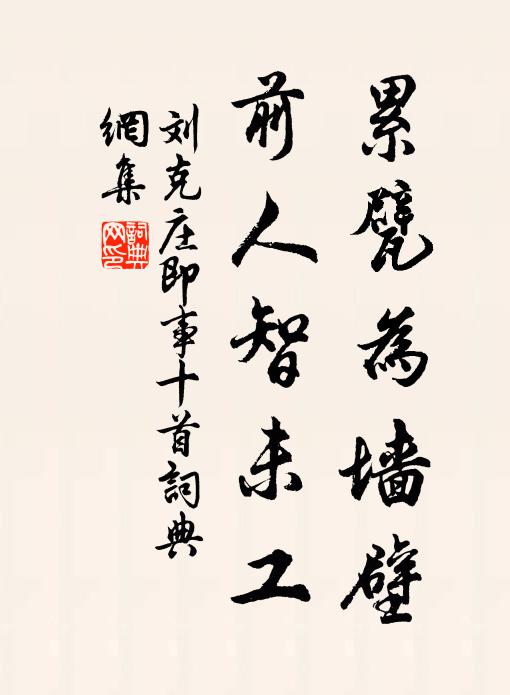 累甓為墙壁
前人智未工
刘克庄即事十首詞典
網集
詞典网印